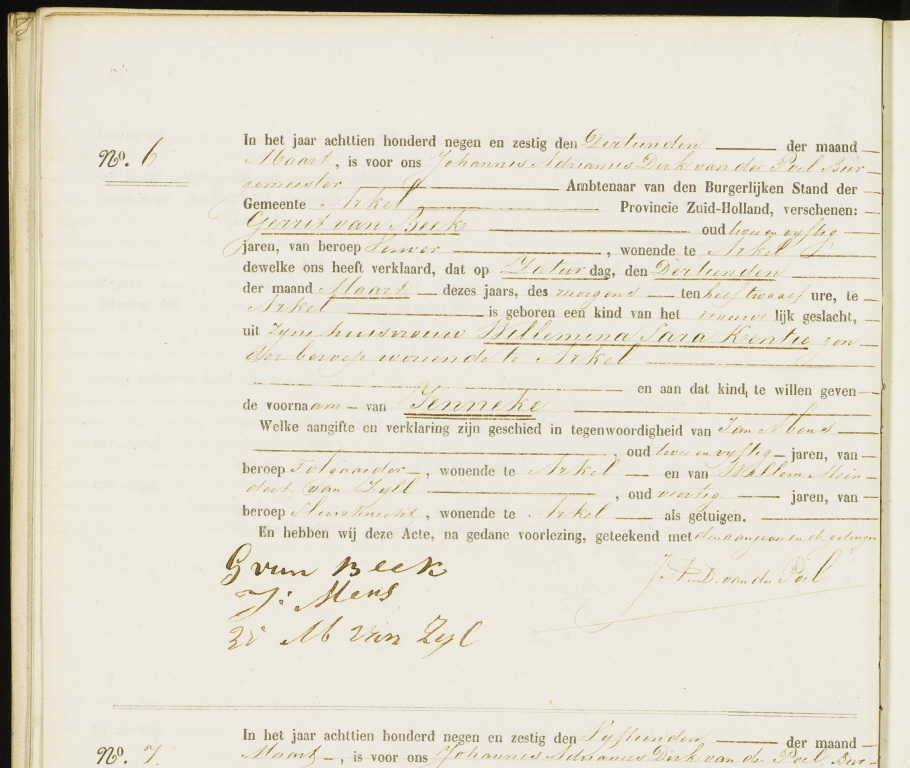 No. 6
In het jaar achttien honderd negen en zestig den Dertienden der maand
Maart, is voor ons Johannes Adrianus Dirk van der Poel Bur-
gemeester Ambtenaar van den Burgerlijken Stand der
Gemeente Arkel Provincie Zuid-Holland, verschenen:
Gerrit van Beek oud twee en vyftig
jaren, van beroep , wonende te Arkel
dewelke ons heeft verklaard, dat op Zaturdag, den Dertienden
der maand Maart dezes jaars, des morgens ten half twaalf ure, te
Arkel is geboren een kind van het vrouwelijk geslacht,
uit zyne huisvrouw Willemina Sara Kentie zon
der beroep wonende te Arkel
en aan dat kind, te willen geven
de voornaam van Jenneke
Welke aangifte en verklaring zijn geschied in tegenwoordigheid van Jan Mens
, oud twee en vyftig jaren, van
beroep , wonende te Arkel en van Willem Mein
dert van Zyll , oud veertig jaren, van
beroep , wonende te Arkel als getuigen.
En hebben wij deze Acte, na gedane voorlezing, geteekend met den aangever en de getuigen
G van Beek
J. A. D. van der Poel
J: Mens
W M van Zyl
No. 7.
In het jaar achttien honderd negen en zestig den Vyftienden der maand
Maart, is voor ons Johannes Adrianus Dirk van der Poel Bur-